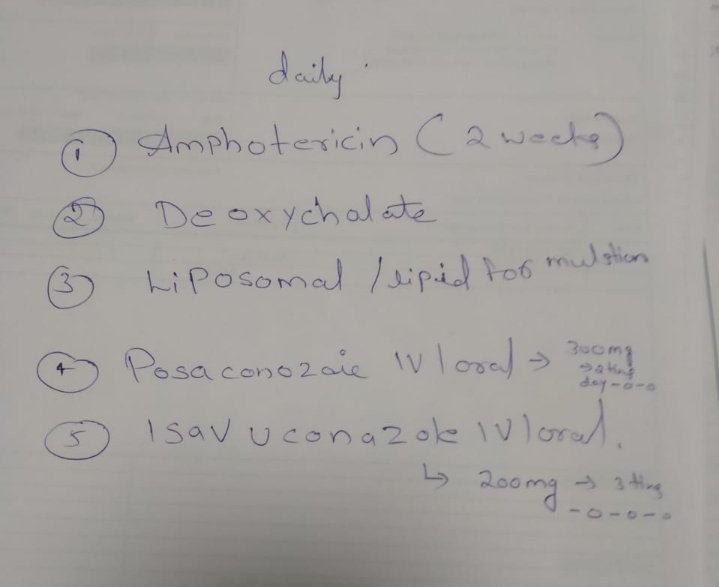 daily
① Amphotericin (2 weeks)
② Deoxycholate
③ Liposomal / lipid for mulstion
④ Posaconozole IV / oral → 300mg
day -o-o
⑤ Isavuconazole IV / oral.
↳ 200mg → 3
-o-o-o